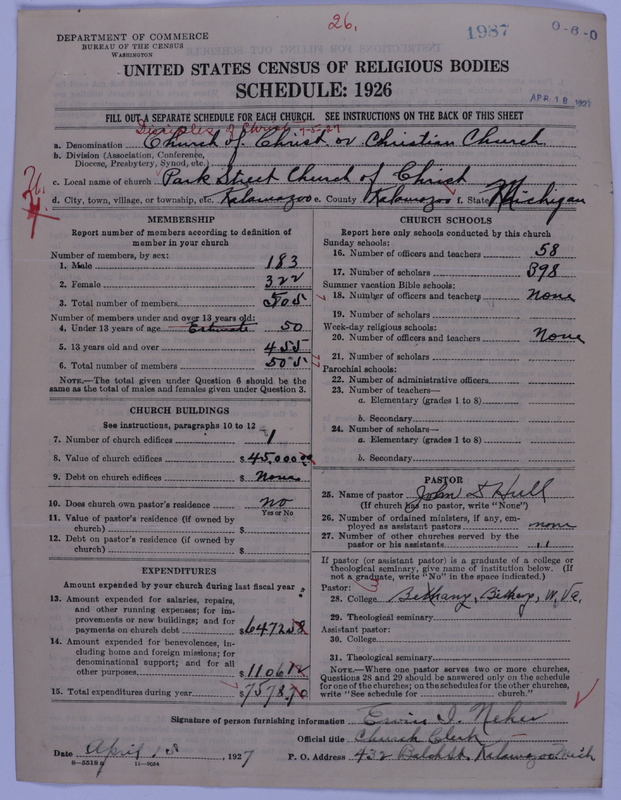 26.
1987
0-8-0
DEPARTMENT OF COMMERCE
BUREAU OF THE CENSUS
WASHINGTON
UNITED STATES CENSUS OF RELIGIOUS BODIES
SCHEDULE: 1926
APR 18 1927
FILL OUT A SEPARATE SCHEDULE FOR EACH CHURCH. SEE INSTRUCTIONS ON THE BACK OF THIS SHEET
Disciples of Christ
a. Denomination Church of Christ or Christian Church
b. Division (Association, Conference, Diocese, Presbytery, Synod, etc.)
c. Local name of church Park Street Church of Christ
d. City, town, village, or township, etc. Kalamazoo e. County Kalamazoo f. State Michigan
MEMBERSHIP
Report number of members according to definition of
member in your church
Number of members, by sex:
1. Male 183
2. Female 322
3. Total number of members 505
Number of members under and over 13 years old:
4. Under 13 years of age Estimate 50
5. 13 years old and over 455
6. Total number of members 505
NOTE.—The total given under Question 6 should be the
same as the total of males and females given under Question 3.
CHURCH BUILDINGS
See instructions, paragraphs 10 to 12
7. Number of church edifices 1
8. Value of church edifices $45,000.00
9. Debt on church edifices $ None
10. Does church own pastor's residence no
Yes or No
11. Value of pastor's residence (if owned by
church) $
12. Debt on pastor's residence (if owned by
church) $
EXPENDITURES
Amount expended by your church during last fiscal year
13. Amount expended for salaries, repairs,
and other running expenses; for im-
provements or new buildings; and for
payments on church debt $6472 58
14. Amount expended for benevolences, in-
cluding home and foreign missions; for
denominational support; and for all
other purposes $1106 12
15. Total expenditures during year $7578.70
CHURCH SCHOOLS
Report here only schools conducted by this church
Sunday schools:
16. Number of officers and teachers 58
17. Number of scholars 398
Summer vacation Bible schools:
18. Number of officers and teachers None
19. Number of scholars
Week-day religious schools:
20. Number of officers and teachers None
21. Number of scholars
Parochial schools:
22. Number of administrative officers
23. Number of teachers—
a. Elementary (grades 1 to 8)
b. Secondary
24. Number of scholars—
a. Elementary (grades 1 to 8)
b. Secondary
PASTOR
25. Name of pastor John S Hull
(If church has no pastor, write "None")
26. Number of ordained ministers, if any, em-
ployed as assistant pastors none
27. Number of other churches served by the
pastor or his assistants "
If pastor (or assistant pastor) is a graduate of a college or
theological seminary, give name of institution below. (If
not a graduate, write "No" in the space indicated.)
Pastor:
28. College Bethany, Bethany, W. Va.
29. Theological seminary
Assistant pastor:
30. College
31. Theological seminary
NOTE.—Where one pastor serves two or more churches,
Questions 28 and 29 should be answered only on the schedule
for one of the churches; on the schedules for the other churches,
write "See schedule for church."
Signature of person furnishing information Erwin I. Neher
Official title Church Clerk
Date April 13, 1927 P. O. Address 432 Balch St. Kalamazoo Mich
8-5518a 11-9084